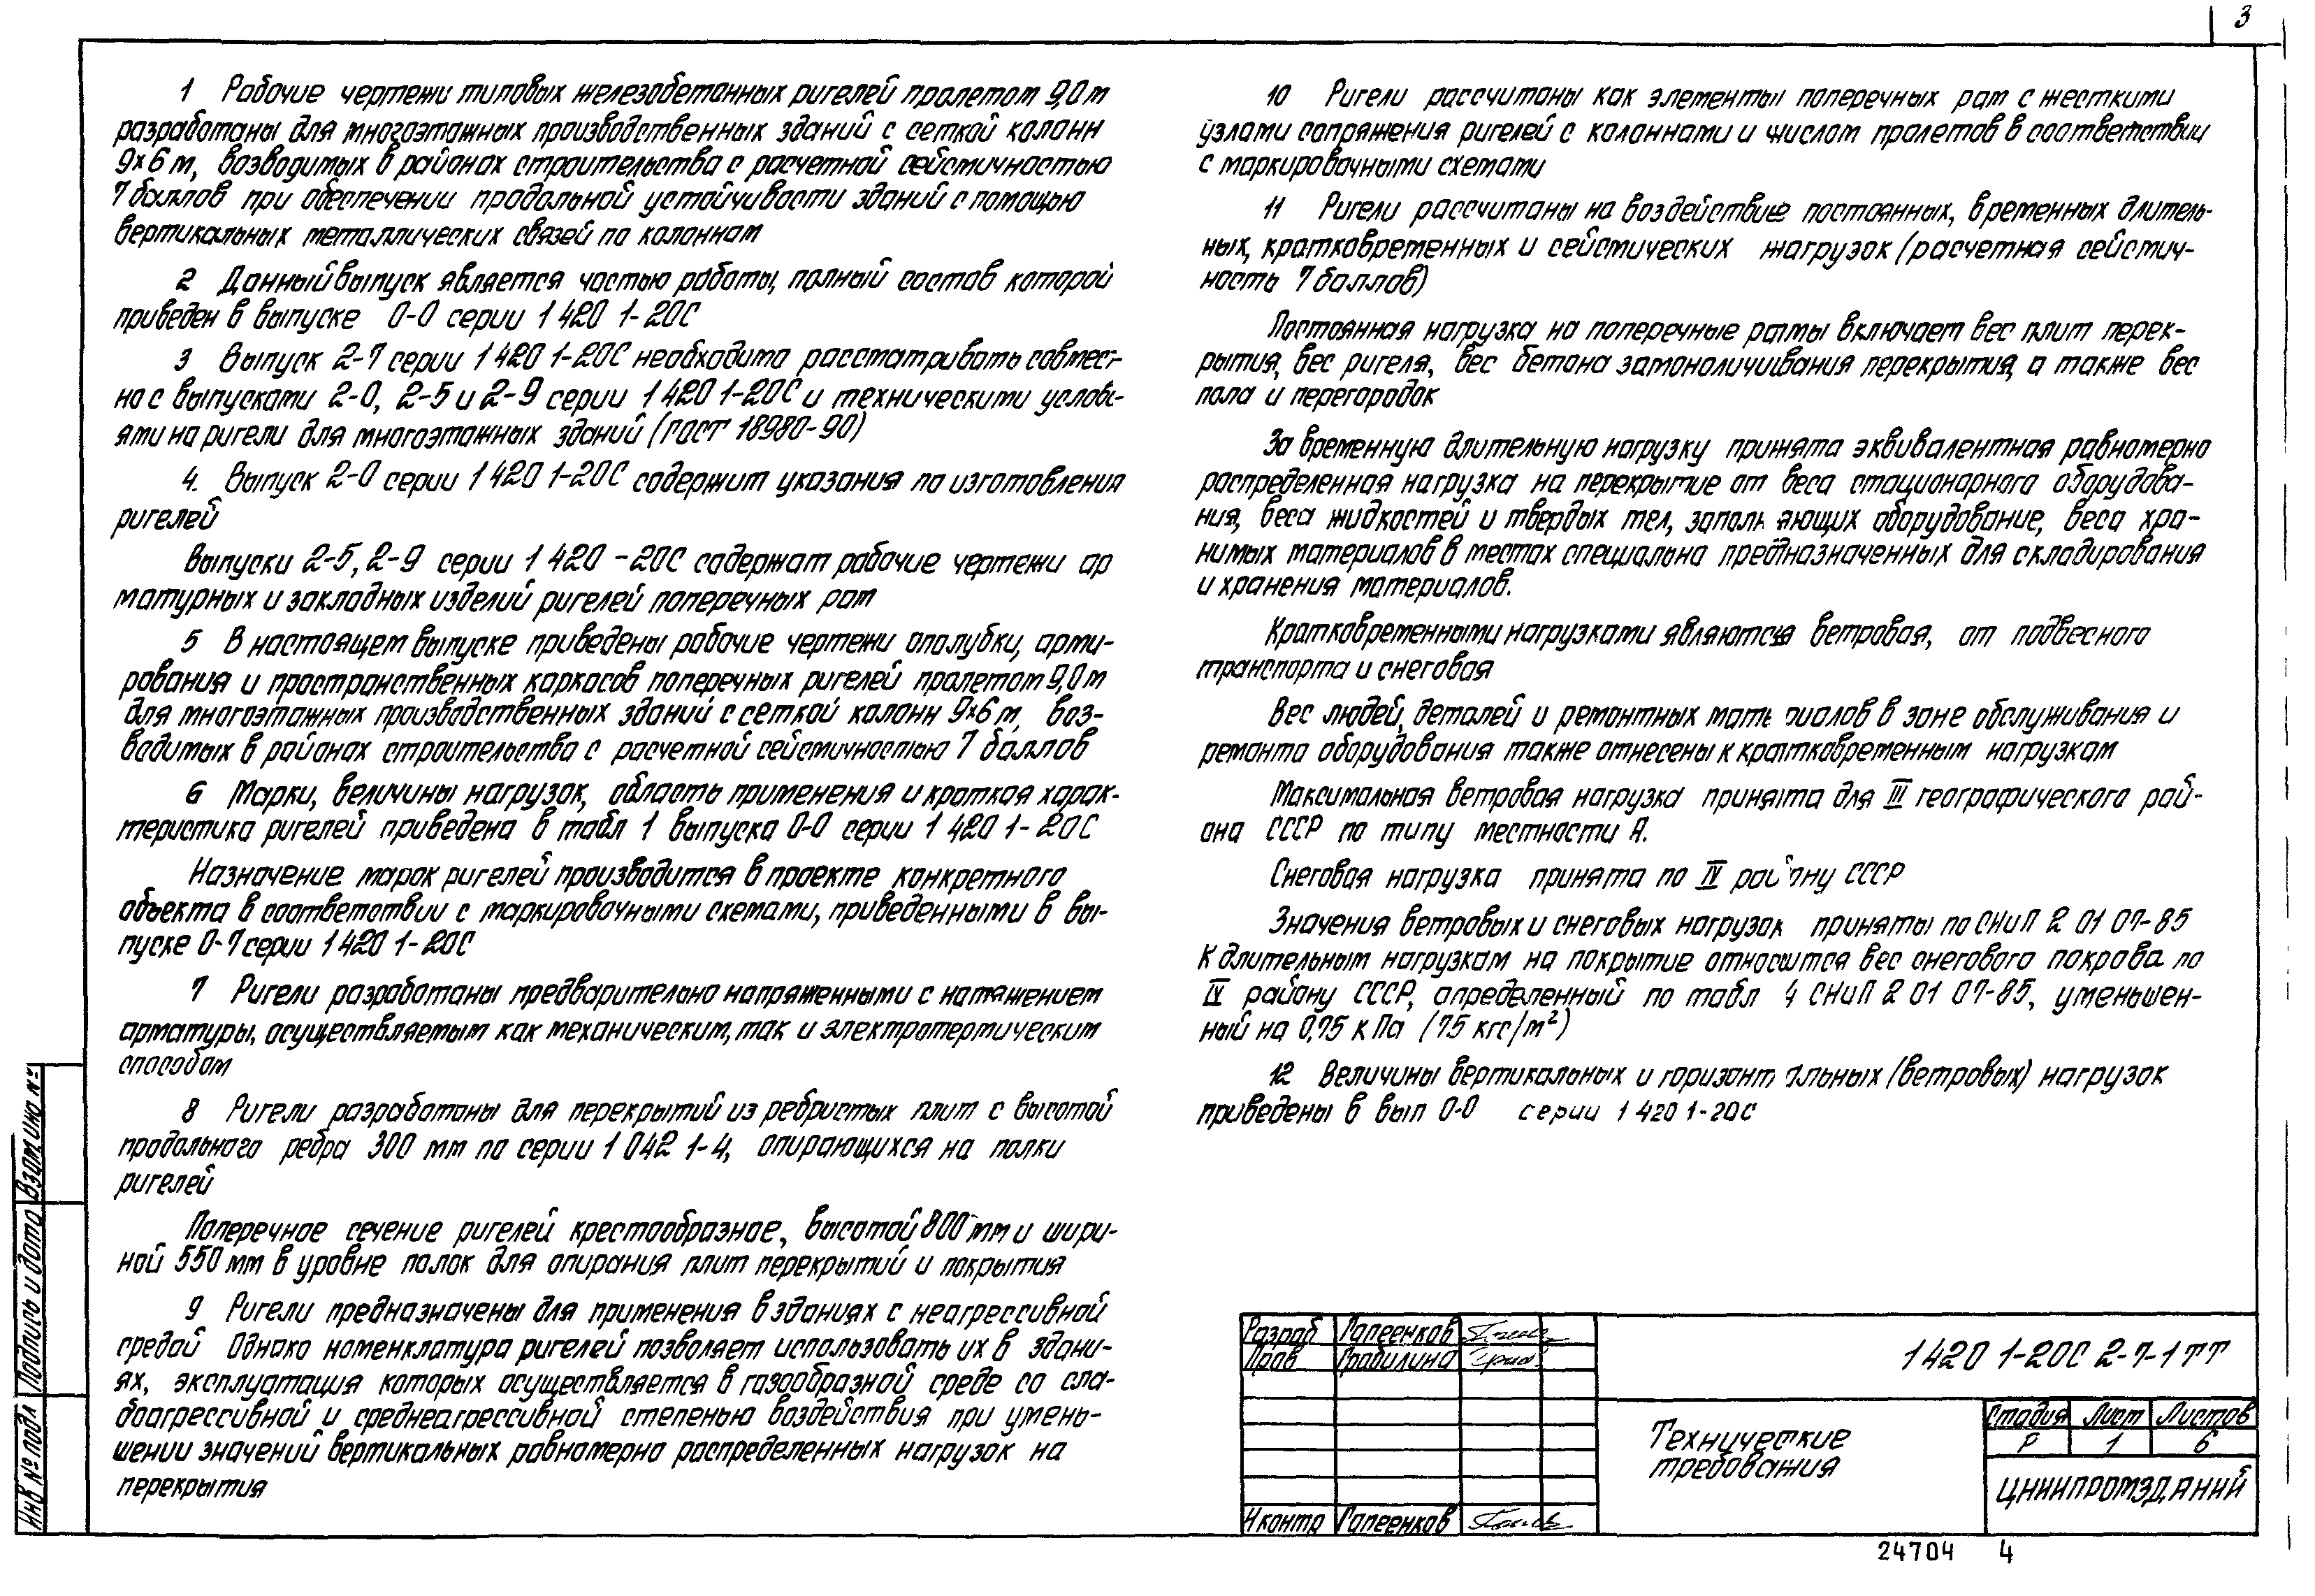 3
1 Рабочие чертежи типовых железобетонных ригелей пролетом 9,0 м
разработаны для многоэтажных производственных зданий с сеткой колонн
9×6 м, возводимых в районах строительства с расчетной сейсмичностью
7 баллов при обеспечении продольной устойчивости зданий с помощью
вертикальных металлических связей по колоннам
2 Данный выпуск является частью работы, полный состав которой
приведен в выпуске 0-0 серии 1 420 1-20С
3 Выпуск 2-7 серии 1 420 1-20С необходимо рассматривать совмест-
но с выпусками 2-0, 2-5 и 2-9 серии 1 420 1-20С и техническими услови-
ями на ригели для многоэтажных зданий (ГОСТ 18980-90)
4. Выпуск 2-0 серии 1 420 1-20С содержит указания по изготовления
ригелей
Выпуски 2-5, 2-9 серии 1 420 -20С содержат рабочие чертежи ар
матурных и закладных изделий ригелей поперечных рам
5 В настоящем выпуске приведены рабочие чертежи опалубки, арми-
рования и пространственных каркасов поперечных ригелей пролетом 9,0 м
для многоэтажных производственных зданий с сеткой колонн 9×6 м, воз-
водимых в районах строительства с расчетной сейсмичностью 7 баллов
6 Марки, величины нагрузок, область применения и краткая харак-
теристика ригелей приведена в табл 1 выпуска 0-0 серии 1 420 1-20С
Назначение марок ригелей производится в проекте конкретного
объекта в соответствии с маркировочными схемами, приведенными в вы-
пуске 0-7 серии 1 420 1-20С
7 Ригели разработаны предварительно напряженными с натяжением
арматуры, осуществляемым как механическим, так и электротермическим
способом
8 Ригели разработаны для перекрытий из ребристых плит с высотой
продольного ребра 300 мм по серии 1 042 1-4, опирающихся на полки
ригелей
Поперечное сечение ригелей крестообразное, высотой 800 мм и шири-
ной 550 мм в уровне полок для опирания плит перекрытий и покрытия
9 Ригели предназначены для применения в зданиях с неагрессивной
средой Однако номенклатура ригелей позволяет использовать их в здани-
ях, эксплуатация которых осуществляется в газообразной среде со сла-
боагрессивной и среднеагрессивной степенью воздействия при умень-
шении значений вертикальных равномерно распределенных нагрузок на
перекрытия
10 Ригели рассчитаны как элементы поперечных рам с жесткими
узлами сопряжения ригелей с колоннами и числом пролетов в соответствии
с маркировочными схемами
11 Ригели рассчитаны на воздействие постоянных, временных длитель-
ных, кратковременных и сейсмических нагрузок (расчетная сейсмич-
ность 7 баллов)
Постоянная нагрузка на поперечные рамы включает вес плит перек-
рытия, вес ригеля, вес бетона замоноличивания перекрытия, а также вес
пола и перегородок
За временную длительную нагрузку принята эквивалентная равномерно
распределенная нагрузка на перекрытие от веса стационарного оборудова-
ния, веса жидкостей и твердых тел, заполняющих оборудование, веса хра-
нимых материалов в местах специально предназначенных для складирования
и хранения материалов.
Кратковременными нагрузками являются ветровая, от подвесного
транспорта и снеговая
Вес людей, деталей и ремонтных материалов в зоне обслуживания и
ремонта оборудования также отнесены к кратковременным нагрузкам
Максимальная ветровая нагрузка принята для III географического рай-
она СССР по типу местности А.
Снеговая нагрузка принята по IV району СССР
Значения ветровых и снеговых нагрузок приняты по СНиП 2 01 07-85
К длительным нагрузкам на покрытие относится вес снегового покрова по
IV району СССР, определенный по табл 4 СНиП 2 01 07-85, уменьшен-
ный на 0,75 кПа (75 кгс/м²)
12 Величины вертикальных и горизонтальных (ветровых) нагрузок
приведены в вып 0-0 серии 1 420 1-20С
Разраб Гапеенков
Пров Грабилина
Н контр Гапеенков
1 420 1-20С 2-7-1 ТТ
Технические
требования
Стадия Лист Листов
Р 1 6
ЦНИИПРОМЗДАНИЙ
Инв № подл Подпись и дата Взам инв №
24704 4